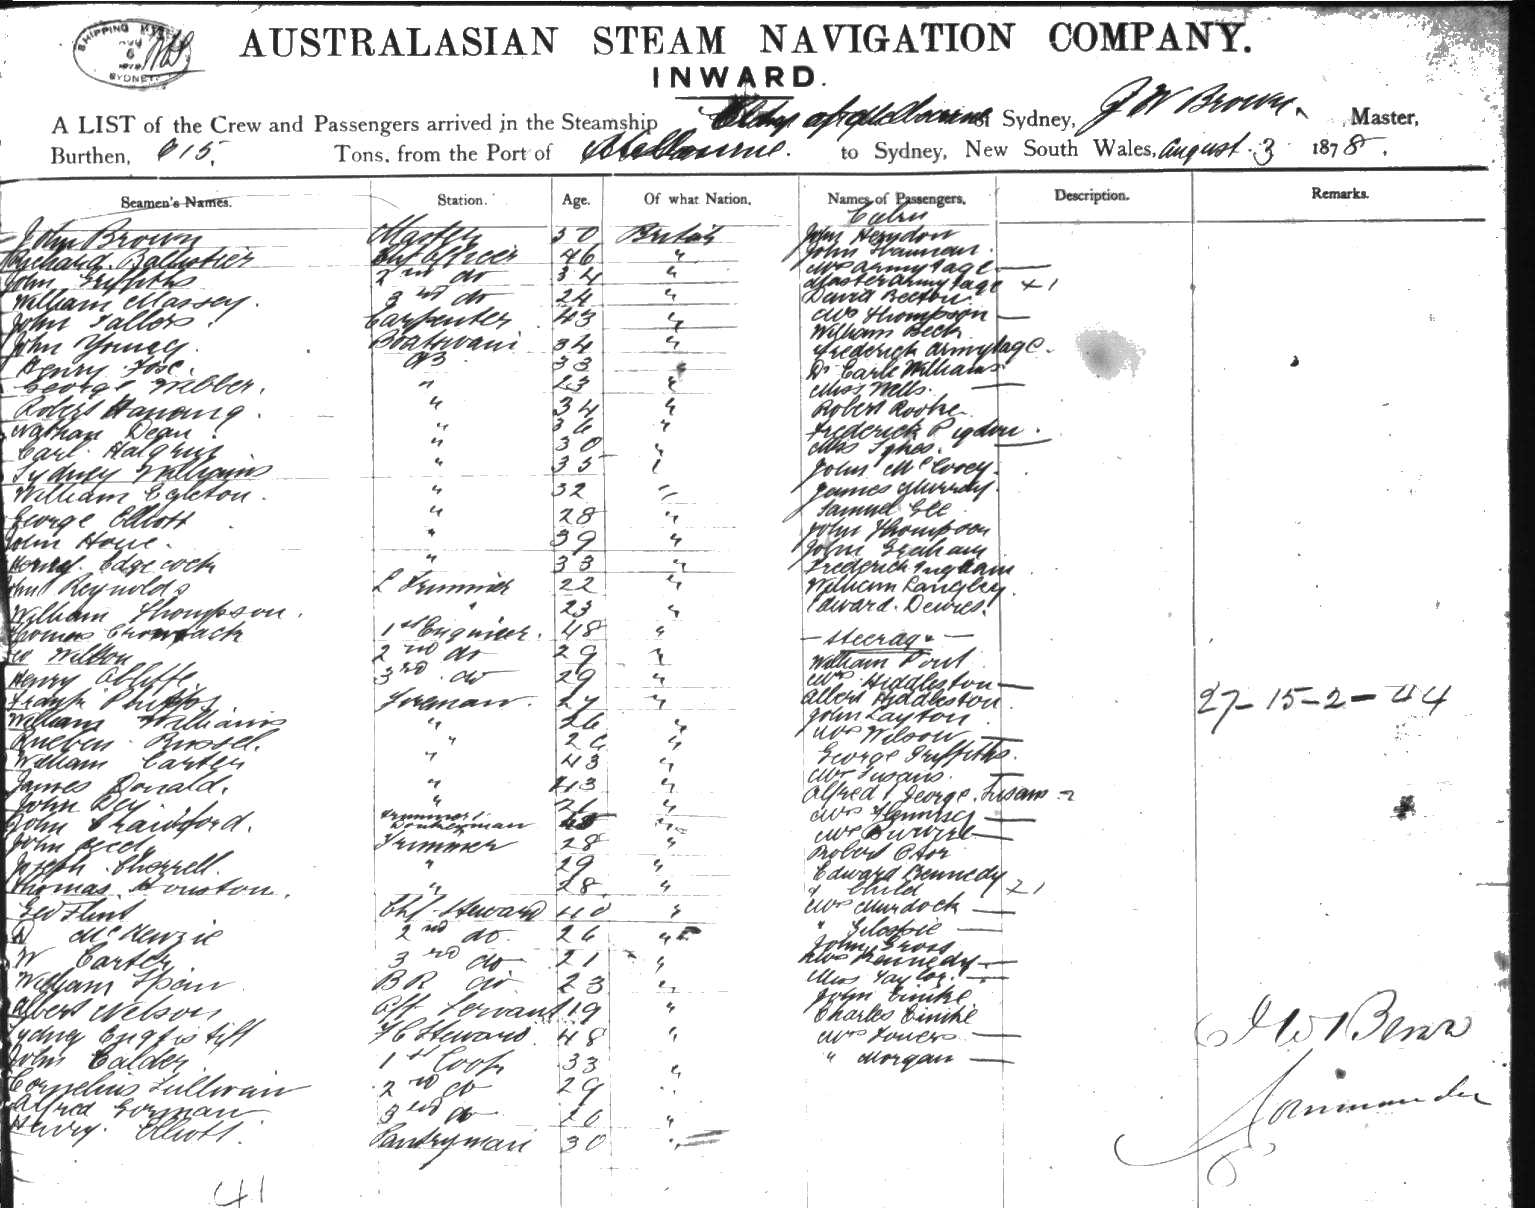 SHIPPING
AUG
6
1878
SYDNEY
AUSTRALASIAN STEAM NAVIGATION COMPANY.
INWARD.
A LIST of the Crew and Passengers arrived in the Steamship City of Melbourne of Sydney, J W Brown, Master,
Burthen, 615, Tons, from the Port of Melbourne. to Sydney, New South Wales, August 3 1878.
Seamen's Names. Station. Age. Of what Nation. Names of Passengers. Description. Remarks.
John Brown Master 50 British John Herydon
46 " John
John Griffiths 2nd do 34 " Mrs Armytage
William Massey. 3rd do 24 " Master Armytage +1
John Carpenter 43 " David Beeton
Mrs Thompson
John Young. 34 " William Beck
Henry 33 Frederick Armytage.
George Webber. " 23 " Dr Earle Williams
Miss Wells.
Robert " 34 " Robert Rooke
Nathan Dean. " 36 " Frederick Pigdon.
Carl " 30 " Mrs Sykes.
Sydney Williams " 35 John
William Egleton. " 32 " James Murray.
George Elliott " 28 " Samuel Gee
John Howe. " 39 " John Thompson
Edgecock " 33 " John Graham
John Reynolds Trimmer 22 " Frederick Ingham
William Thompson. " 23 " William Langley
Edward
Thomas 1st Engineer. 48 " Steerage
W Wilson 2nd do 29 " William
Henry 3rd do 29 " Mrs Hiddleston
Fireman 27 " Albert Hiddleston 27-15-2-44
William Williams " 26 " John Layton
Russel. " " Mrs Wilson
William Carter " 43 " George Griffiths.
James Donald. " 43 " Mrs Susans.
John Dey " " Alfred & George Susans 2
John Crawford. Trimmer & Donkeyman " Mrs Fleming
John Trimmer 28 " Mrs
Joseph Cherrell. " 29 " Robert
Thomas Houston. " 28 " Edward Kennedy
& Child 21
Geo Flint Chf Steward 40 " Mrs Murdock
McKenzie 2nd do 26 " " Gillespie
W Carter 3rd do 21 " John Gross
Mrs Kennedy
William Spain BR do 23 " Miss Taylor.
Albert Nelson Off Servant 19 " John
Charles
Sydney F C Steward 48 " Mrs Towers
John Calder 1st Cook 33 " " Morgan
Cornelius Sullivan 2nd do 29 "
Alfred Gorman 3rd do 20 "
Henry Elliott Pantryman 30 "
J W Brown
Commander
41